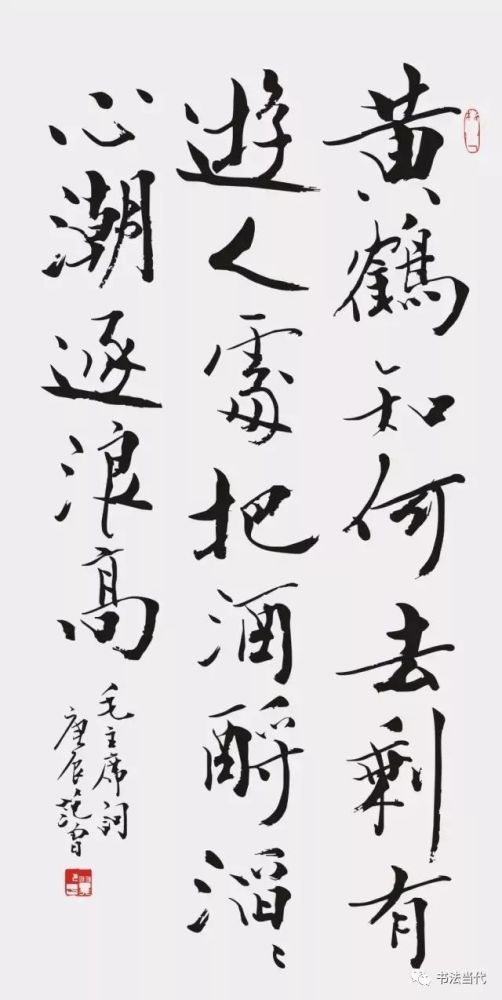 黄鶴知何去剩有
遊人處把酒酹滔〻
心潮逐浪高
毛主席詞
庚辰范曾
书法当代